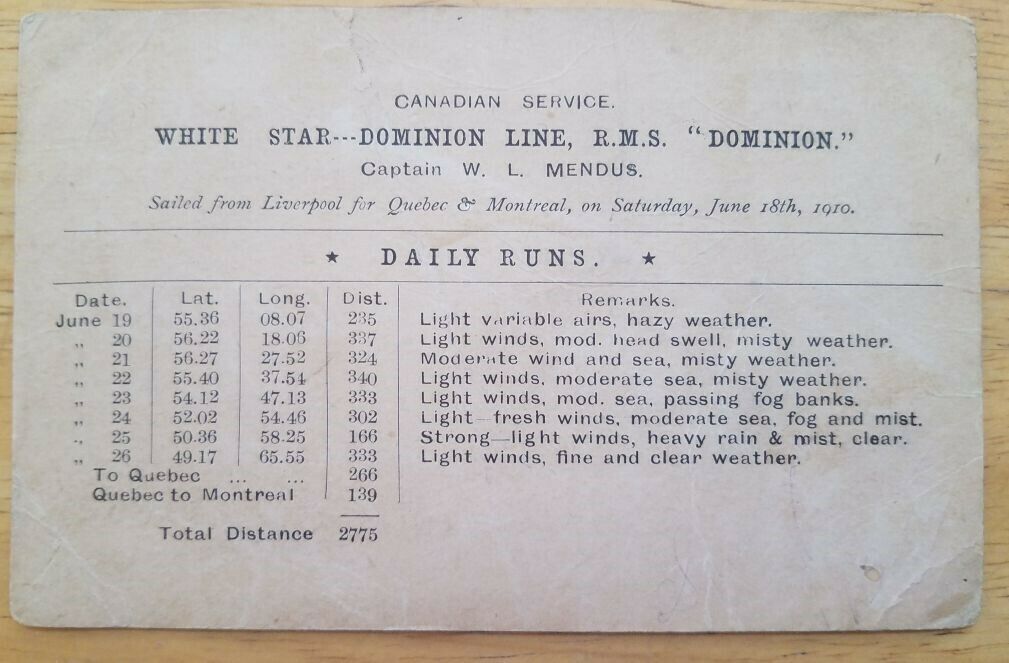 CANADIAN SERVICE.
WHITE STAR---DOMINION LINE, R.M.S. "DOMINION."
Captain W. L. MENDUS.
Sailed from Liverpool for Quebec & Montreal, on Saturday, June 18th, 1910.
★ DAILY RUNS. ★
Date. Lat. Long. Dist. Remarks.
June 19 55.36 08.07 235 Light variable airs, hazy weather.
„ 20 56.22 18.06 337 Light winds, mod. head swell, misty weather.
„ 21 56.27 27.52 324 Moderate wind and sea, misty weather.
„ 22 55.40 37.54 340 Light winds, moderate sea, misty weather.
„ 23 54.12 47.13 333 Light winds, mod. sea, passing fog banks.
„ 24 52.02 54.46 302 Light—fresh winds, moderate sea, fog and mist.
„ 25 50.36 58.25 166 Strong—light winds, heavy rain & mist, clear.
„ 26 49.17 65.55 333 Light winds, fine and clear weather.
To Quebec ... ... 266
Quebec to Montreal 139
Total Distance 2775